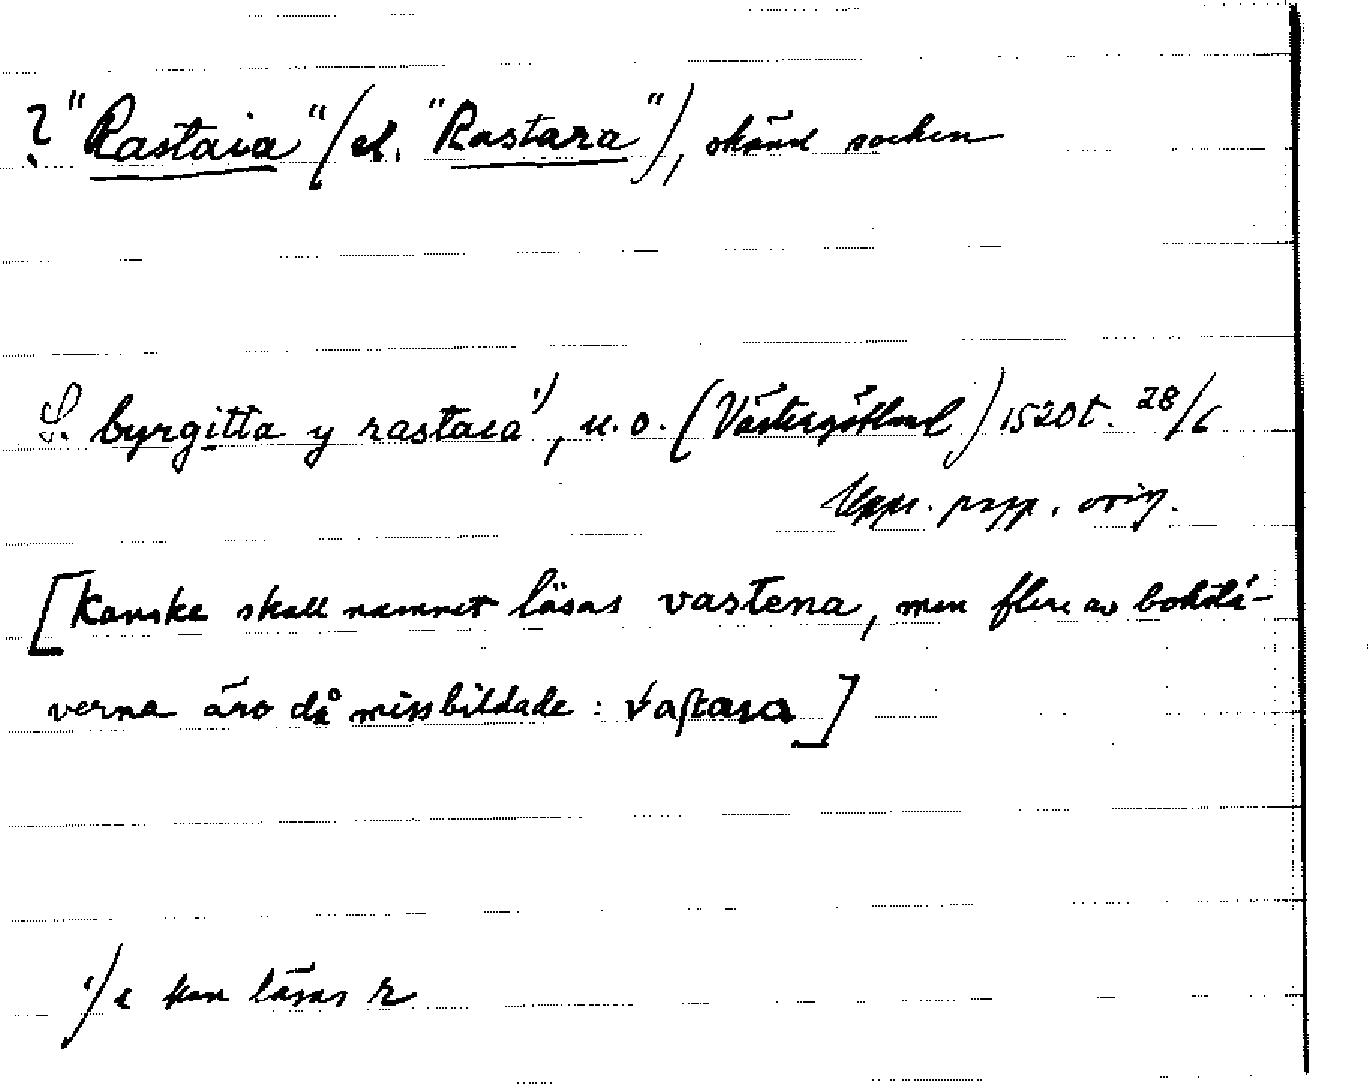 ? "Rastaia" (el. "Rastara"), okänd socken
S. byrgitta y rastaıa ¹), u.o. (Västergötland) 1520t. 28/6
Upps. papp. orig.
[Kanske skall namnet läsas vastena, men flere av bokstä-
verna äro då missbildade: vastaıa]
¹) ı kan läsas r